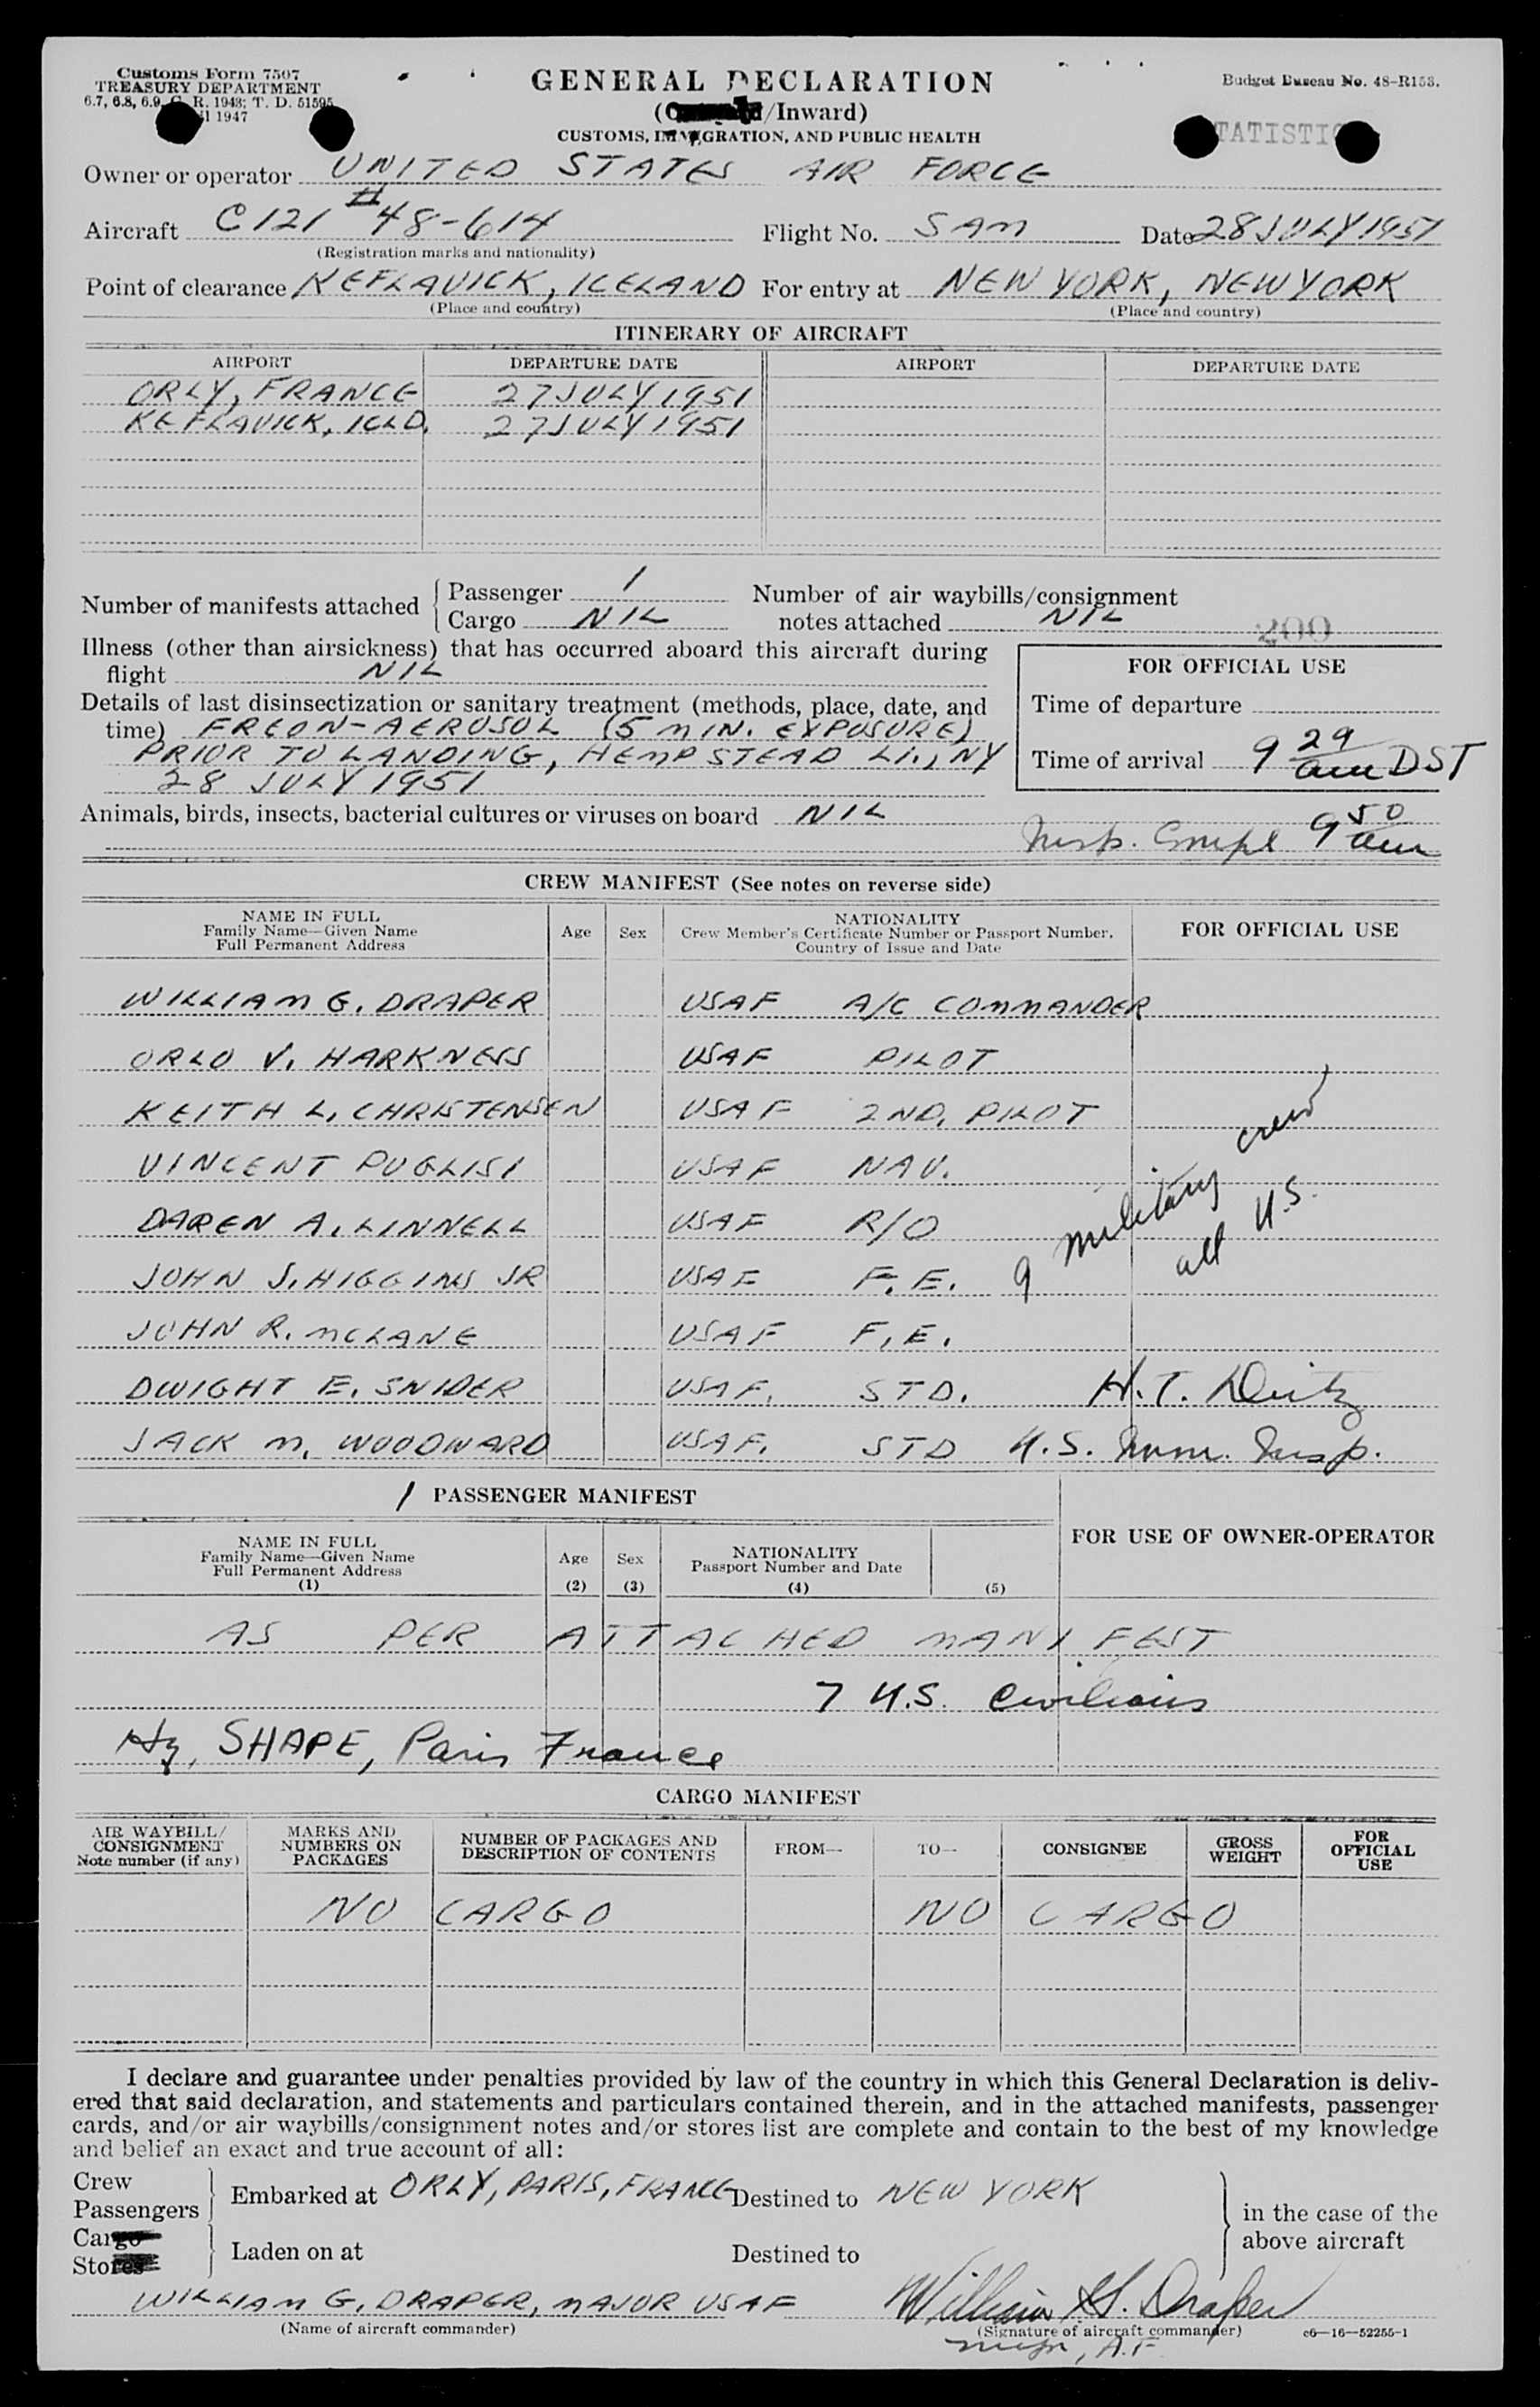 Customs Form 7507
TREASURY DEPARTMENT
6.7, 6.8, 6.9, C. R. 1943; T. D. 51595
1947
GENERAL DECLARATION
(/Inward)
CUSTOMS, IMMIGRATION, AND PUBLIC HEALTH
Budget Bureau No. 48-R153.
TATISTIC
Owner or operator UNITED STATES AIR FORCE
Aircraft C121 #48-614 Flight No. SAM Date 28 JULY 1951
(Registration marks and nationality)
Point of clearance KEFLAVICK, ICELAND For entry at NEW YORK, NEW YORK
(Place and country) (Place and country)
ITINERARY OF AIRCRAFT
AIRPORT DEPARTURE DATE AIRPORT DEPARTURE DATE
ORLY, FRANCE 27 JULY 1951
KEFLAVICK, ICLD. 27 JULY 1951
Number of manifests attached Passenger 1
Cargo NIL
Number of air waybills/consignment
notes attached NIL
200
Illness (other than airsickness) that has occurred aboard this aircraft during
flight NIL
Details of last disinsectization or sanitary treatment (methods, place, date, and
time) FREON-AEROSOL (5 MIN. EXPOSURE)
PRIOR TO LANDING, HEMPSTEAD L.I., NY
28 JULY 1951
FOR OFFICIAL USE
Time of departure
Time of arrival 9 29 am DST
Animals, birds, insects, bacterial cultures or viruses on board NIL
Insp. Compl 9 50 am
CREW MANIFEST (See notes on reverse side)
NAME IN FULL
Family Name—Given Name
Full Permanent Address
Age
Sex
NATIONALITY
Crew Member's Certificate Number or Passport Number,
Country of Issue and Date
FOR OFFICIAL USE
WILLIAM G. DRAPER USAF A/C COMMANDER
ORLO V. HARKNESS USAF PILOT
KEITH L. CHRISTENSEN USAF 2ND. PILOT
VINCENT PUGLISI USAF NAV.
DAREN A. LINNELL USAF R/O
JOHN J. HIGGINS JR USAF F.E.
JOHN R. MCLANE USAF F.E.
DWIGHT E. SNIDER USAF. STD.
JACK M. WOODWARD USAF. STD
9 military crew
all U.S.
H. T. Deitz
U.S. Imm. Insp.
1 PASSENGER MANIFEST
NAME IN FULL
Family Name—Given Name
Full Permanent Address
(1)
Age
(2)
Sex
(3)
NATIONALITY
Passport Number and Date
(4)
(5)
FOR USE OF OWNER-OPERATOR
AS PER ATTACHED MANIFEST
7 U.S. Civilians
Hq, SHAPE, Paris France
CARGO MANIFEST
AIR WAYBILL/
CONSIGNMENT
Note number (if any)
MARKS AND
NUMBERS ON
PACKAGES
NUMBER OF PACKAGES AND
DESCRIPTION OF CONTENTS
FROM—
TO—
CONSIGNEE
GROSS
WEIGHT
FOR
OFFICIAL
USE
NO CARGO NO CARGO
I declare and guarantee under penalties provided by law of the country in which this General Declaration is deliv-
ered that said declaration, and statements and particulars contained therein, and in the attached manifests, passenger
cards, and/or air waybills/consignment notes and/or stores list are complete and contain to the best of my knowledge
and belief an exact and true account of all:
Crew
Passengers
Embarked at ORLY, PARIS, FRANCE Destined to NEW YORK
Cargo
Stores
Laden on at Destined to
in the case of the
above aircraft
WILLIAM G. DRAPER, MAJOR USAF William G. Draper
(Name of aircraft commander) (Signature of aircraft commander) c6—16—52255-1
Major, A.F.